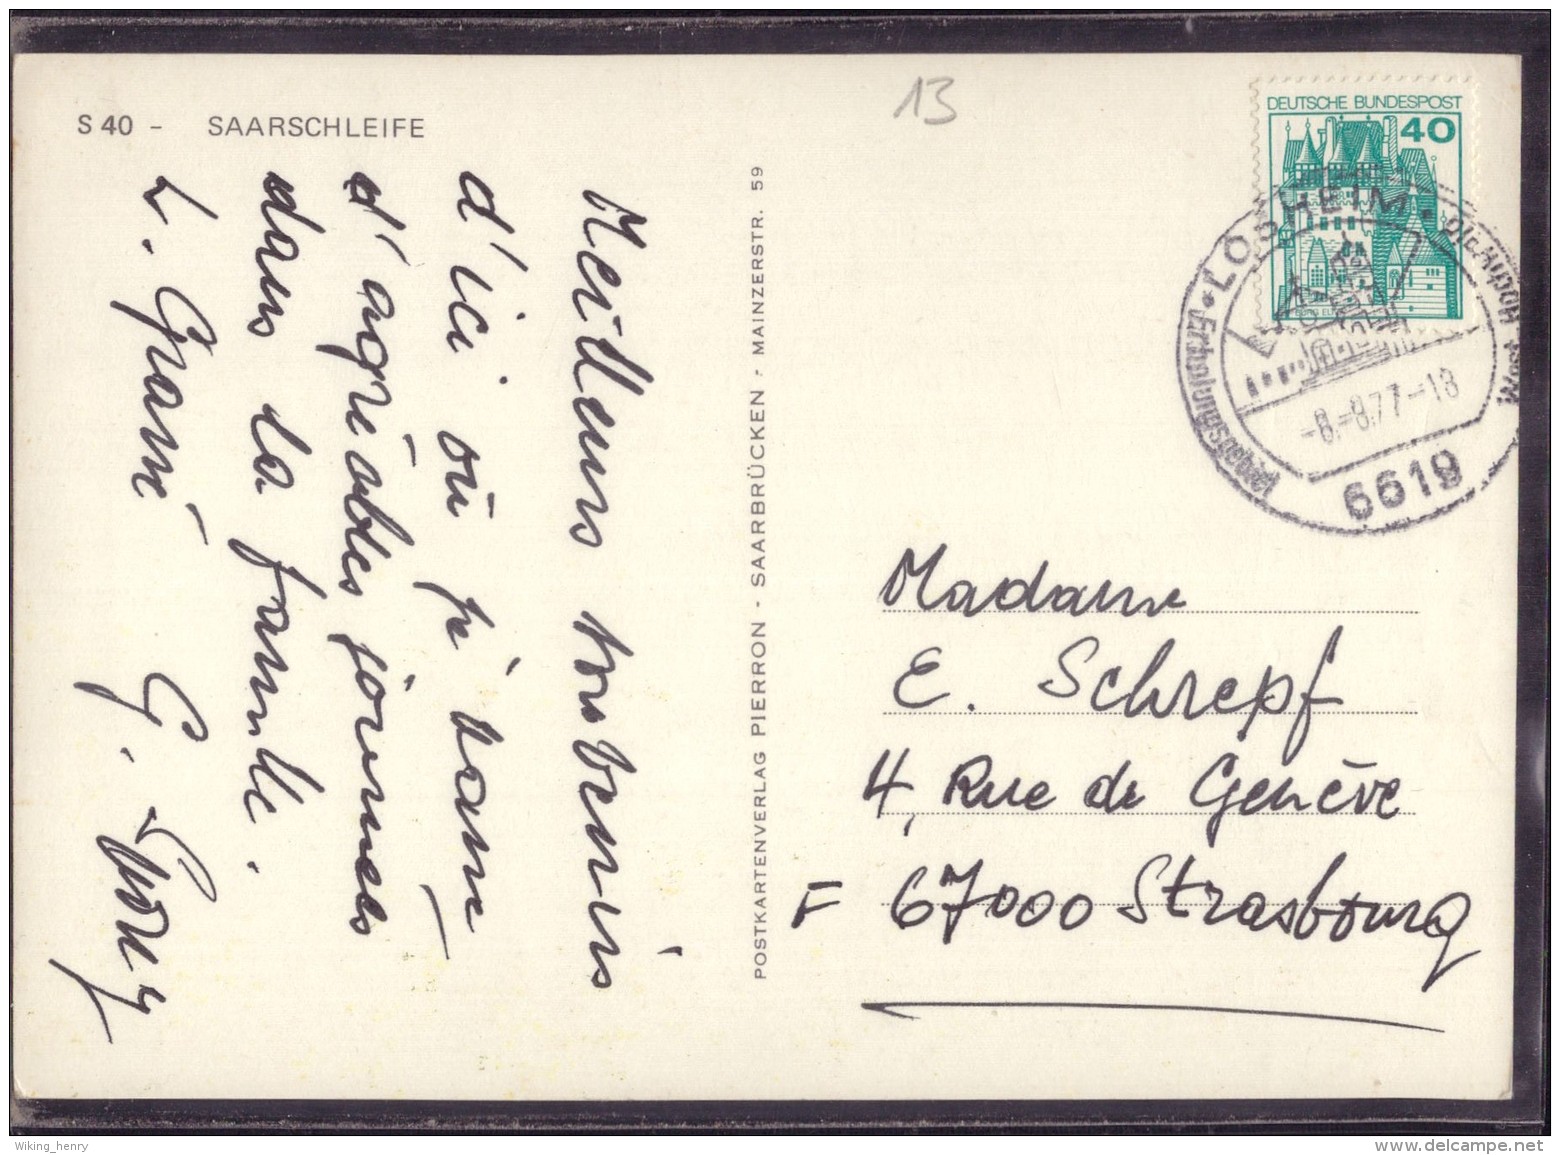 S 40 - SAARSCHLEIFE
13
DEUTSCHE BUNDESPOST
40
LOSHEIM
-8.-8.77-18
6619
Meilleurs souvenirs
d'ici où je passe
d'agréables journées
dans la famille.
L.
G.
POSTKARTENVERLAG PIERRON - SAARBRÜCKEN - MAINZERSTR. 59
Madame
E. Schrepf
4, Rue de Genève
F 67000 Strasbourg
Wiking_henry
delcampe.net